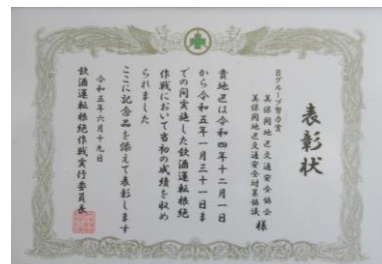 表彰状
Bグループ努力賞
美保関地区交通安全協会
美保関地区交通安全対策協議会
様
貴地区は令和四年十二月一日
から令和五年一月三十一日ま
での間実施した飲酒運転根絶
作戦において当初の成績を収め
られました
ここに記念品を添えて表彰します
令和五年六月十九日
飲酒運転根絶作戦実行委員長